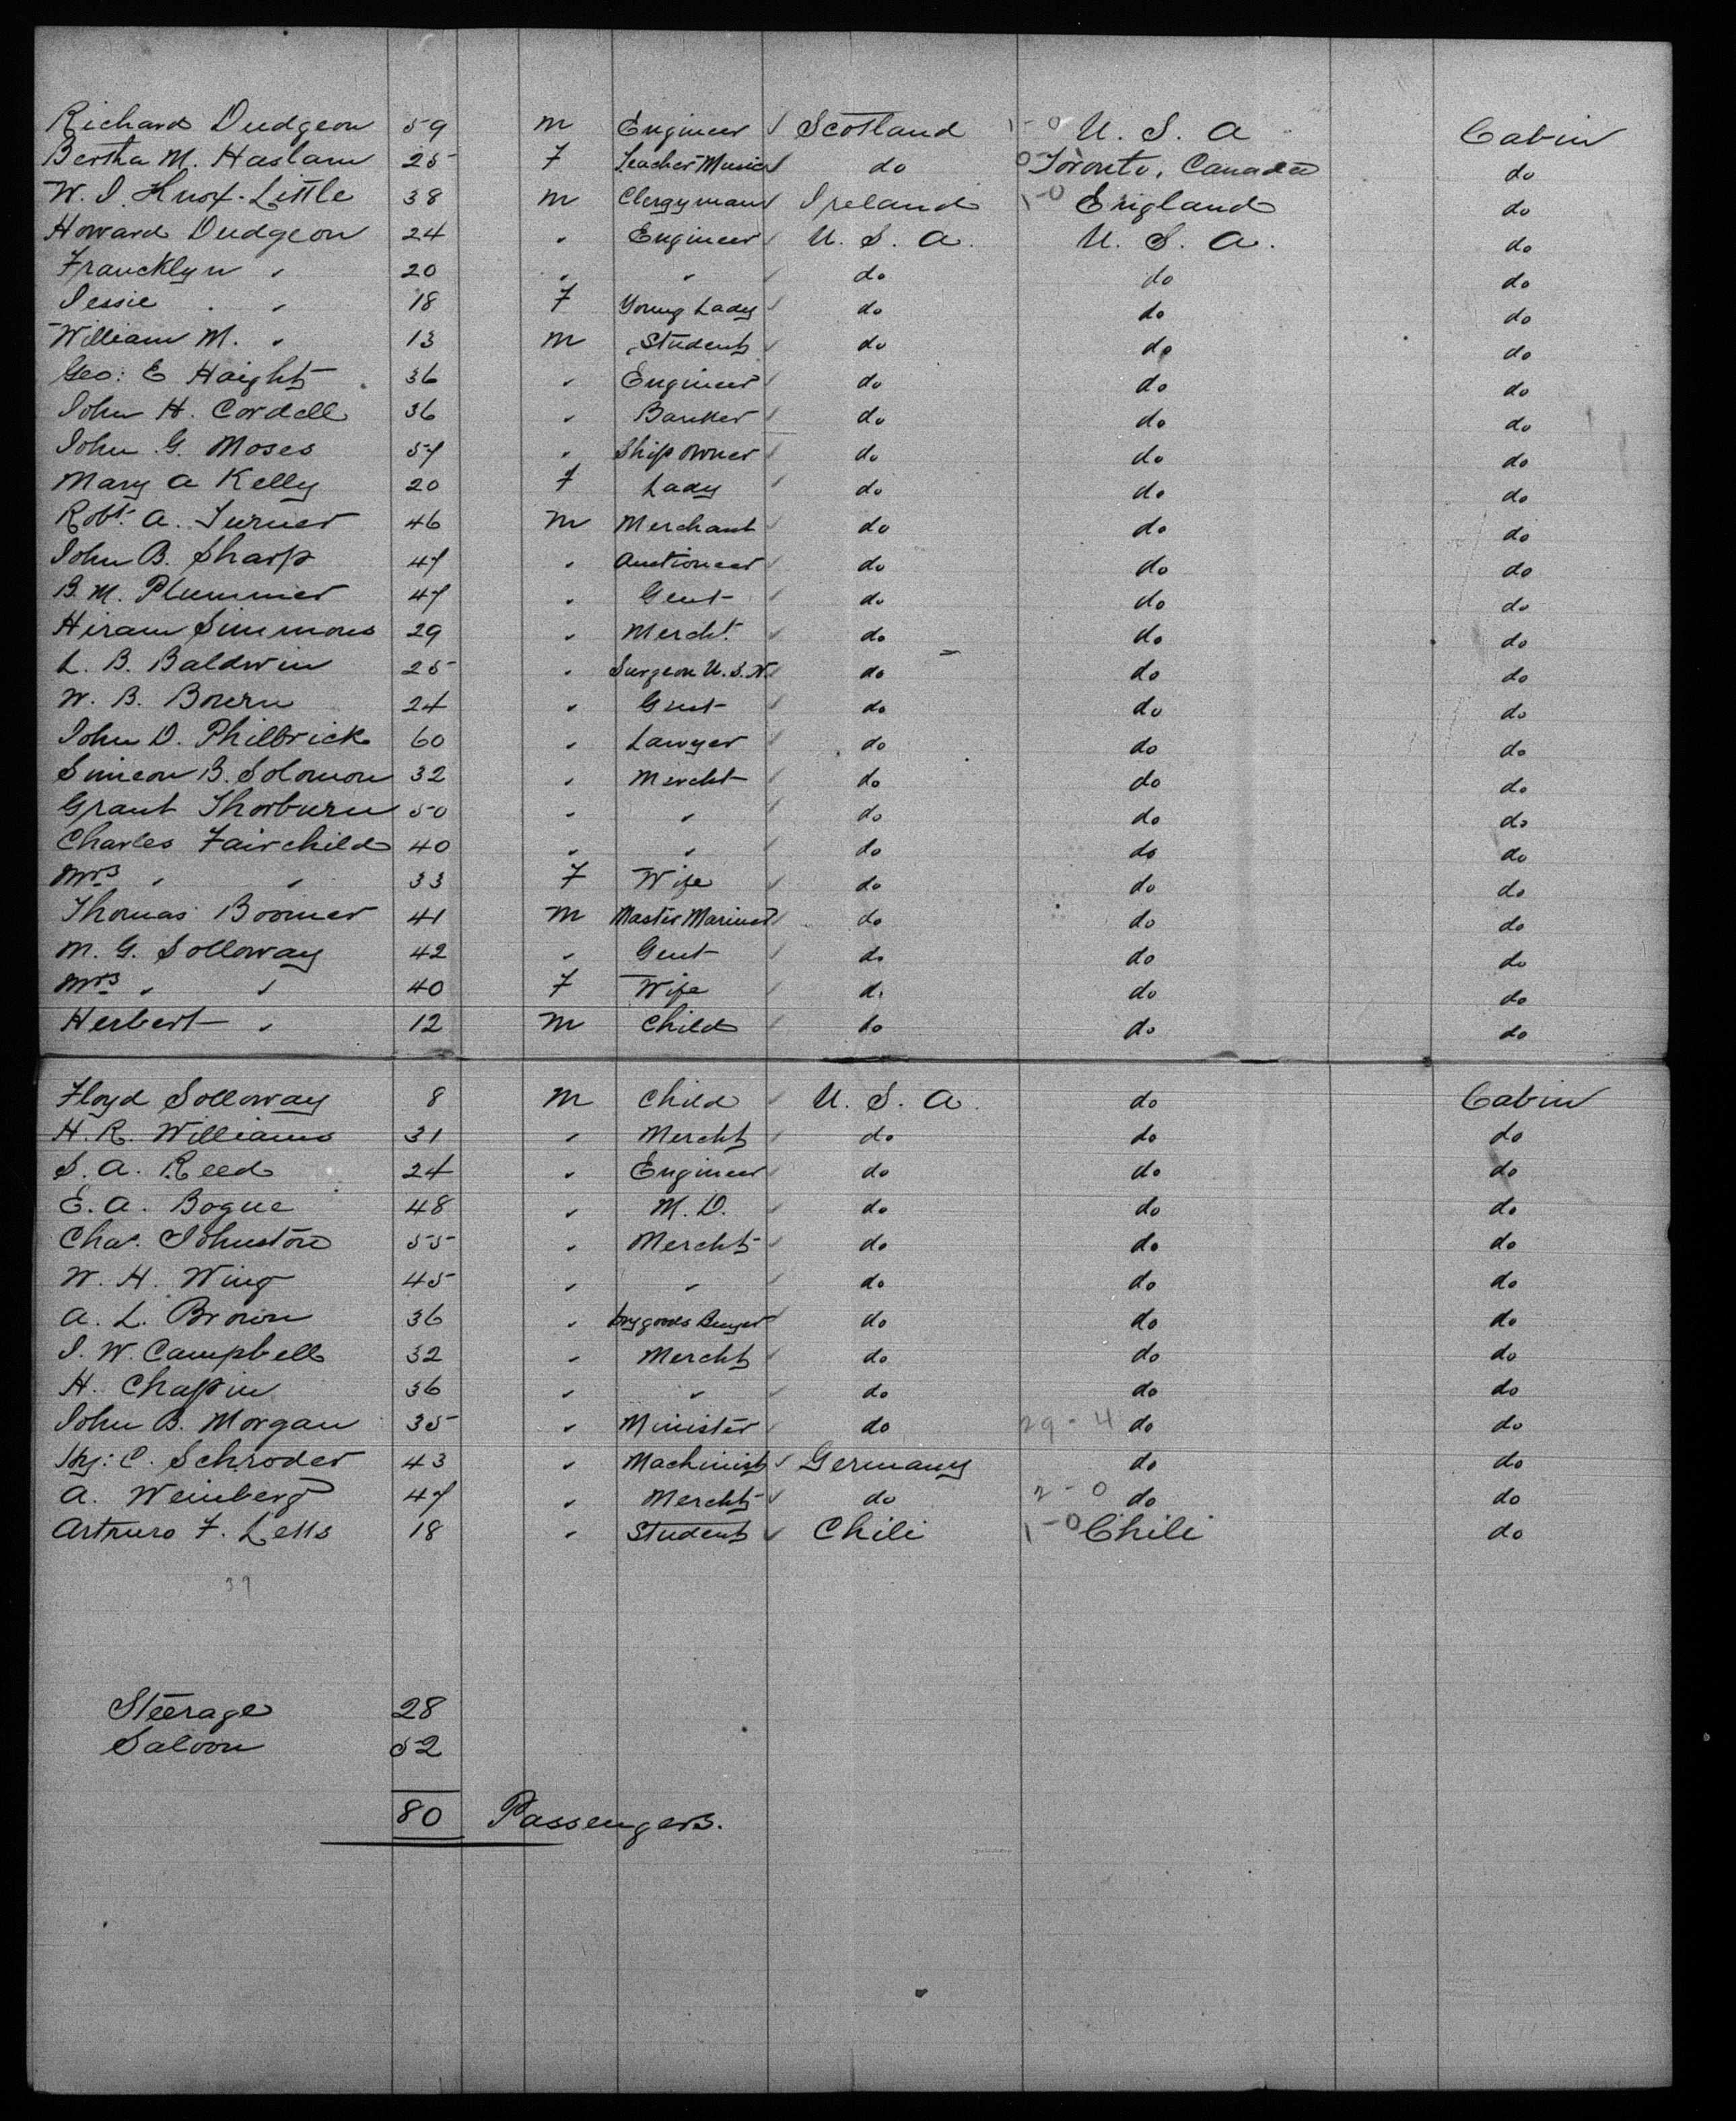 Richard Dudgeon 59 m Engineer ✓ Scotland 1-0 U. S. A Cabin
Bertha M. Haslam 25 F Teacher Music ✓ do 0 Toronto, Canada do
W. J. Knox-Little 38 m Clergyman ✓ Ireland 1-0 England do
Howard Dudgeon 24 " Engineer ✓ U. S. A. U. S. A. do
Francklyn " 20 " " ✓ do do do
Jessie " 18 F Young Lady ✓ do do do
William M. " 13 m Student ✓ do do do
Geo: E Haight 36 " Engineer ✓ do do do
John H. Cordell 36 " Banker ✓ do do do
John G. Moses 57 " Ship owner ✓ do do do
Mary A Kelly 20 F Lady ✓ do do do
Robt. A. Turner 46 m Merchant ✓ do do do
John B. Sharp 47 " Auctioneer ✓ do do do
B. M. Plummer 47 " Gent ✓ do do do
Hiram Simmons 29 " Mercht. ✓ do do do
L. B. Baldwin 25 " Surgeon U. S. N. ✓ do do do
W. B. Bourn 24 " Gent ✓ do do do
John D. Philbrick 60 " Lawyer ✓ do do do
Simeon B. Solomon 32 " Mercht ✓ do do do
Grant Thorburn 50 " " ✓ do do do
Charles Fairchild 40 " " ✓ do do do
Mrs " " 33 F Wife ✓ do do do
Thomas Boomer 41 m Master Mariner ✓ do do do
M. G. Solloway 42 " Gent ✓ do do do
Mrs " " 40 F Wife ✓ do do do
Herbert " 12 m Child ✓ do do do
Floyd Solloway 8 m Child ✓ U. S. A. do Cabin
H. R. Williams 31 " Mercht ✓ do do do
S. A. Reed 24 " Engineer ✓ do do do
E. A. Bogue 48 " M. D. ✓ do do do
Chas. Johnstone 55 " Mercht ✓ do do do
W. H. Wing 45 " " ✓ do do do
A. L. Brown 36 " Drygoods Buyer ✓ do do do
J. W. Campbell 32 " Mercht ✓ do do do
H. Chapin 36 " " ✓ do do do
John B. Morgan 35 " Minister ✓ do 29-4 do do
Hy: C. Schroder 43 " Machinist ✓ Germany do do
A. Weinberg 47 " Mercht ✓ do 2-0 do do
Arturo F. Letts 18 " Student ✓ Chili 1-0 Chili do
39
Steerage 28
Saloon 52
80 Passengers.